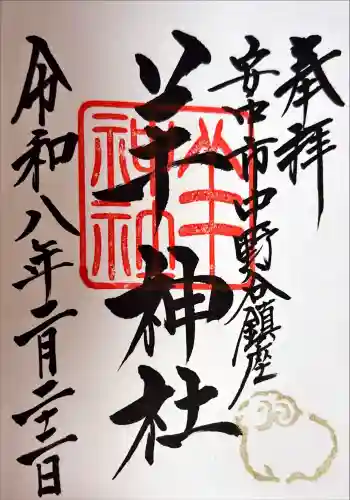 奉拝
安中市中野谷鎮座
羊神社
令和八年二月二十二日